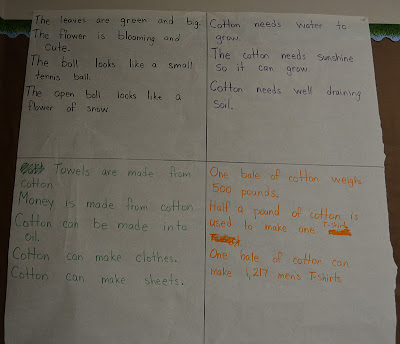 The leaves are green and big.
The flower is blooming and
cute.
The boll looks like a small
tennis ball.
The open boll looks like a
flower of snow.
Cotton needs water to
grow.
The cotton needs sunshine
so it can grow.
Cotton needs well draining
soil.
Towels are made from
cotton
Money is made from cotton
Cotton can be made into
oil.
Cotton can make clothes.
Cotton can make sheets.
One bale of cotton weighs
500 pounds.
Half a pound of cotton is
used to make one T-shirts
One bale of cotton can
make 1,217 men's T-shirts